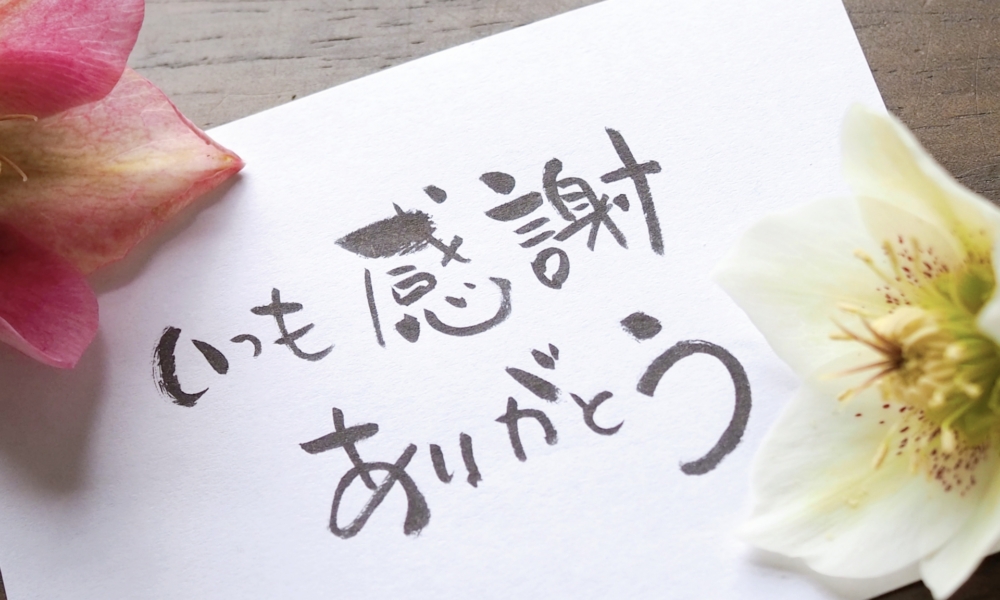 いつも感謝
ありがとう